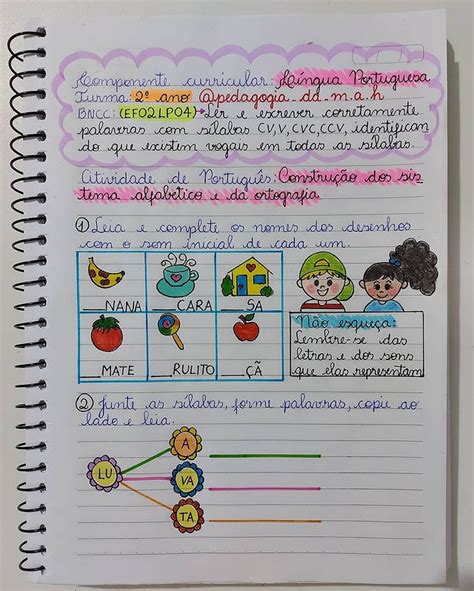 Componente curricular: Língua Portuguesa
Turma: 2º ano @pedagogia_da_m.a.h
BNCC: (EF02LP04)→ Ler e escrever corretamente
palavras com sílabas CV, V, CVC, CCV, identifican
do que existem vogais em todas as sílabas.
Atividade de Português: Construção dos sis
tema alfabético e da ortografia
① Leia e complete os nomes dos desenhos
com o som inicial de cada um.
__NANA __CARA __SA
__MATE __RULITO __ÇÃ
Não esqueça:
Lembre-se das
letras e dos sons
que elas representam
② Junte as sílabas, forme palavras, copie ao
lado e leia.
A
LU VA
TA